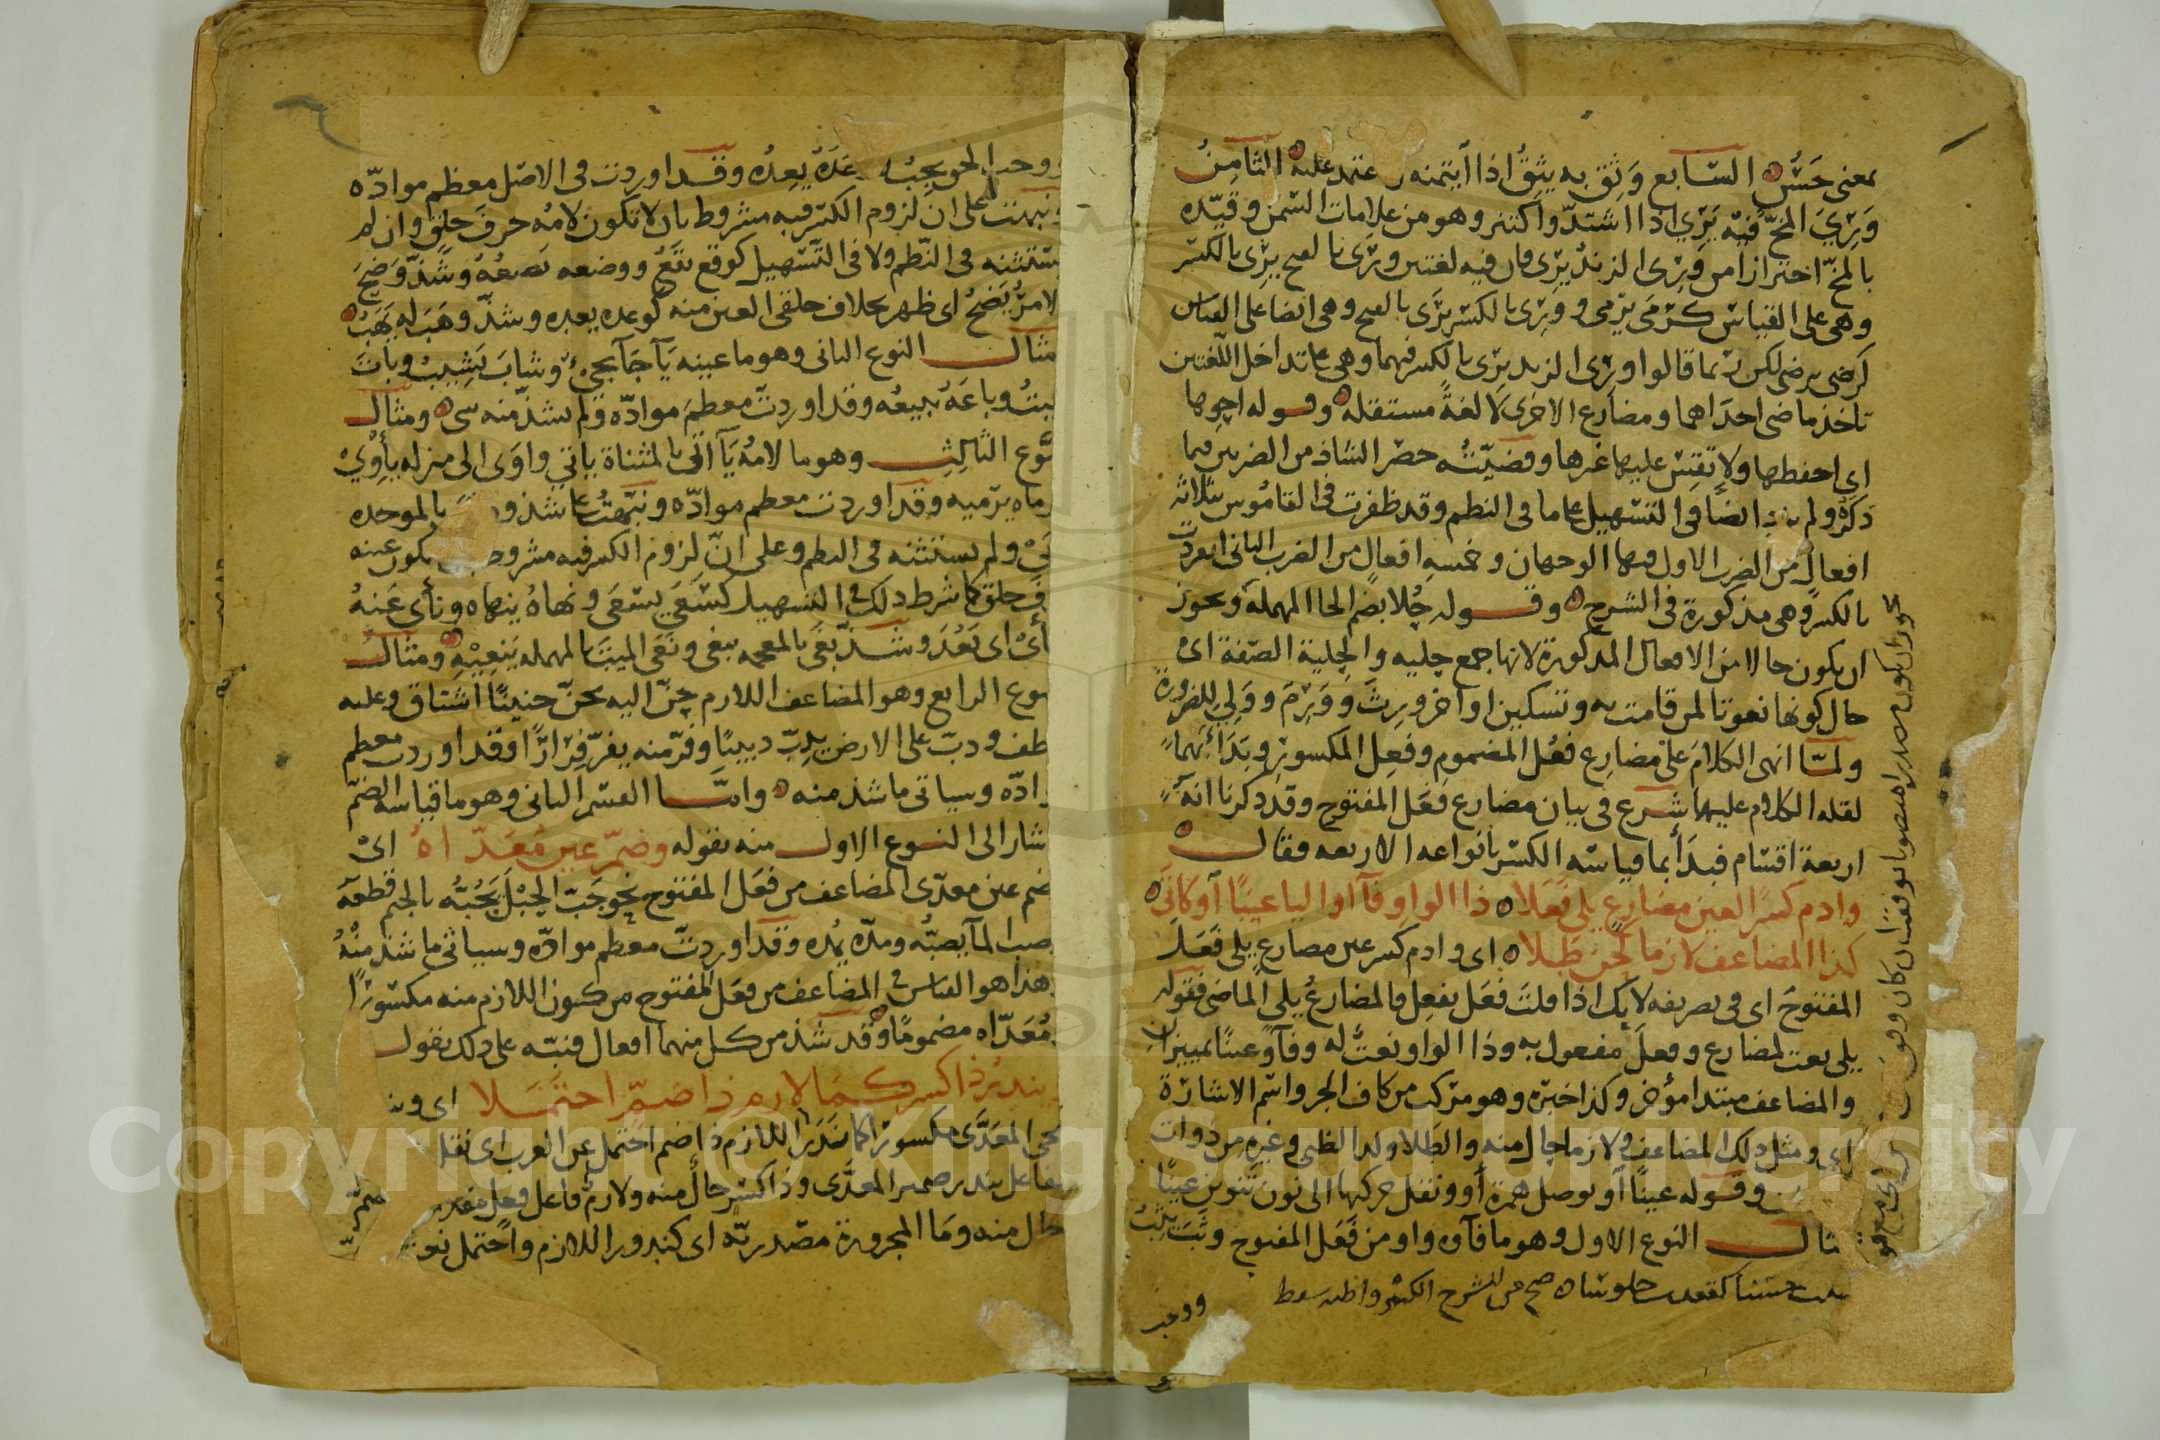 بمعنى حَسُن السَّابع وَثِقَ به يثِقُ اذا ائتمنه واعتمد عليه الثامن
وَرِيَ المخّ فيه يَرِي اذا اشتدّ واكتنز وهو من علامات السّمن وقيّده
بالمخّ احترازا من وَرِى الزند يَرِى فان فيه لغتين ورَى بالفتح يرِى بالكسر
وهى على القياس كرَمَى يرمى و ورِى بالكسر يرَى بالفتح وهى ايضا على القياس
كرضى يرضى لكن ربما قالوا ورِى الزند يرِى بالكسر فيهما وهى على تداخل اللغتين
تاخذ ماضى احداهما ومضارع الاخرى لا لغةً مستقله وقوله احوها
اى احفظها ولا تقس عليها غيرها وقضيّته حصر الشاذ من الضربين فيما
ذكره ولم يزد ايضًا فى التسهيل على ما فى النظم وقد ظفرت فى القاموس بثلاثه
افعال من الضرب الاول فيها الوجهان وخمسه افعال من الضرب الثانى انفردت
بالكسر وهى مذكورة فى الشرح وقوله حُلا بضم الحا المهملة ويجوز
ان يكون حالا من الافعال المذكورة لانها جمع حِليه والحِلية الصّفة اىْ
حال كونها نعوتا لمن قامت به وتسكين اواخر ورِث وورِمَ ووَلِى للضرورة
ولمّا انهى الكلام على مضارع فعُل المضموم وفعِل المكسور وبَدَأ بهما
لقله الكلام عليها شرع فى بيان مضارع فَعَل المفتوح وقد ذكرنا انه
اربعة اقسام فبدَأ بما قياسه الكسر بانواعه الاربعه فقال
وادم كسرَ العين مضارعٍ يلى فَعَلا ذا الواو فآ او اليا عينًا او كاتَى
كذا المضاعف لازما كحنّ طلا اى وادم كسر عين مضارعٍ يلى فَعَلَ
المفتوحَ اى فى تصريفه لانك اذا قلتَ فَعَل يفعِل فالمضارعُ يلى الماضى فقوله
يلى نعت لمضارع وفعلَ مفعول به وذا الواو نعتٌ له وفآ وعينًا تمييزان
والمضاعف مبتدا مؤخر وكذا خبره وهو مركب من كاف الجر واسم الاشارة
اى ومثل ذلك المضاعف ولازما حال منه والطَلا ولد الظبى وغيره من ذوات
وقوله عينًا او بوصل همزة أو ونقل حركتها الى نون تنوين عينًا
مثال النوع الاول وهو ما فآوه واو من فَعَل المفتوح وثَبَ يثِبُ
صح من الشرح الكبير واظنه سقط
ووجب
يجوز ان يكون مصدرا منصوبا
ووجب الحق يجِبُ وعَدَهُ يعِدُه وقد اوردت فى الاصل معظم موادّه
ونبهت على ان لزوم الكسر فيه مشروط بان لا تكون لامُه حرفَ حلقٍ وان لم
يستثنه فى النّظم ولا فى التسهيل كوقع يقَعُ ووضعه يضعُهُ وشذّ وَضحَ
الامرُ يَضحُ اى ظهر بخلاف حلقى العين منه كوعده يعِده وشذّ وهَبَ له يَهَبُ
مثال النوع الثانى وهو ما عينه يآ جآ يجىْء وشابَ يَشِيبُ وبات
يبيتُ وباعَهُ يبيعُه وقد اوردتُ معظمَ موادّه ولم يشذّ منه شى ومثال
النَّوع الثالث وهو ما لامُه يَآ اتى بالمثناة ياتى واوَى الى منزله يأْوِىْ
ورماه يرميه وقد اوردت معظم موادّه ونبّهتُ على شذوذ بالموحده
يأبَى ولم يستثنه فى النظم وعلى انّ لزوم الكسر فيه مشروط بان يكون عينه
حرفَ حلق كما شرط ذلك فى التسهيل كسَعَى يسعَى ونهاهُ ينهاه ونأى عَنهُ
ينأىْ اى بَعُدَ وشذّ بغَى بالمعجمه يبغى ونَعَى الميتَ بالمهمله يَنعِيْهِ ومثال
النوع الرابع وهو المضاعف اللازم حنّ اليه يحنّ حنينًا اشتاق وعليه
عطف ودبّ على الارض يدِبّ دبيبًا وفرّ منه يفرّ فِرَارًا وقد اوردت معظم
موادّه وسياتى ما شذ منه وامّا القسم الثانى وهو ما قياسه الضمّ
فاشار الى النوع الاول منه بقوله وضمّ عين مُعَدّاهُ اىْ
وضم عين معدّى المضاعف من فَعَل المفتوح نحو جَبّ الحَبْلَ يَجُبُّه بالجيم قطعه
وصب المآ يصبُّه ومدّه يمُده وقد اوردتّ معظم موادّه وسياتى ما شذ منْهُ
وهذا هو القياس فى المضاعف من فعَل المفتوح من كون اللازم منه مكسورًا
ومُعَدّاه مضمومًا وقد شذ من كل منهما افعال فنبّه على ذلك بقوله
ويندر ذا كسر كما لازم ذا ضمّ احتملا اى وينـ
ـدر مجى المعَدَّى مكسورًا كما نَدَر اللازم ذا ضم احتمل عن العرب اى نقل
ففاعل يندر ضمير المعدَّى وذا كسر حال منه ولازم فاعل فعل مقدر
حال منه ومَا المجرورة مصدريّه اى كندور اللازم واحتمل نعت